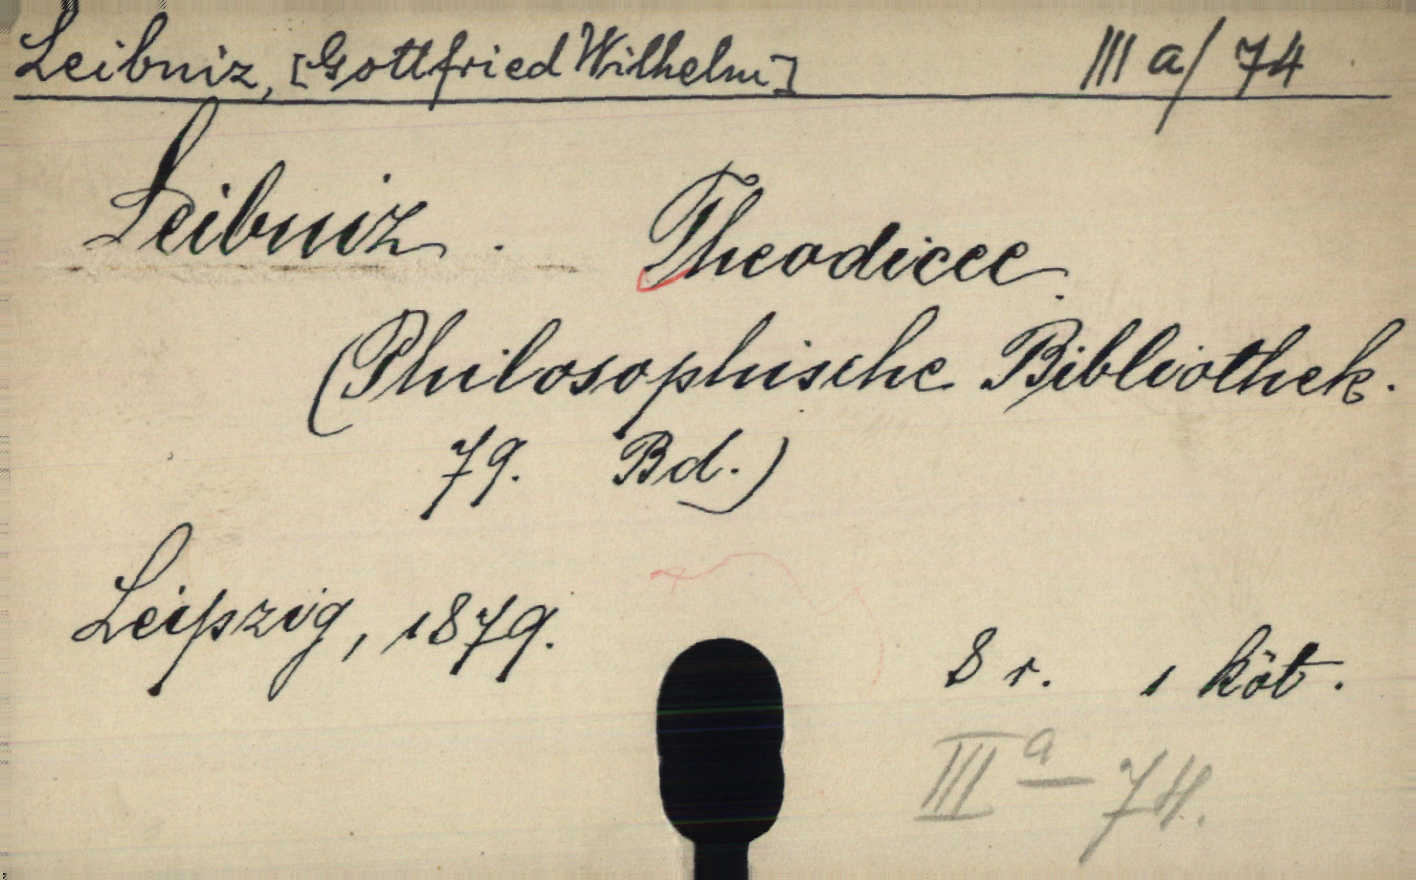 Leibniz, [Gottfried Wilhelm] III a/ 74
Leibniz. Theodicee.
(Philosophische Bibliothek.
79. Bd.)
Leipzig, 1879.
8 r. 1 köt.
III a 74.